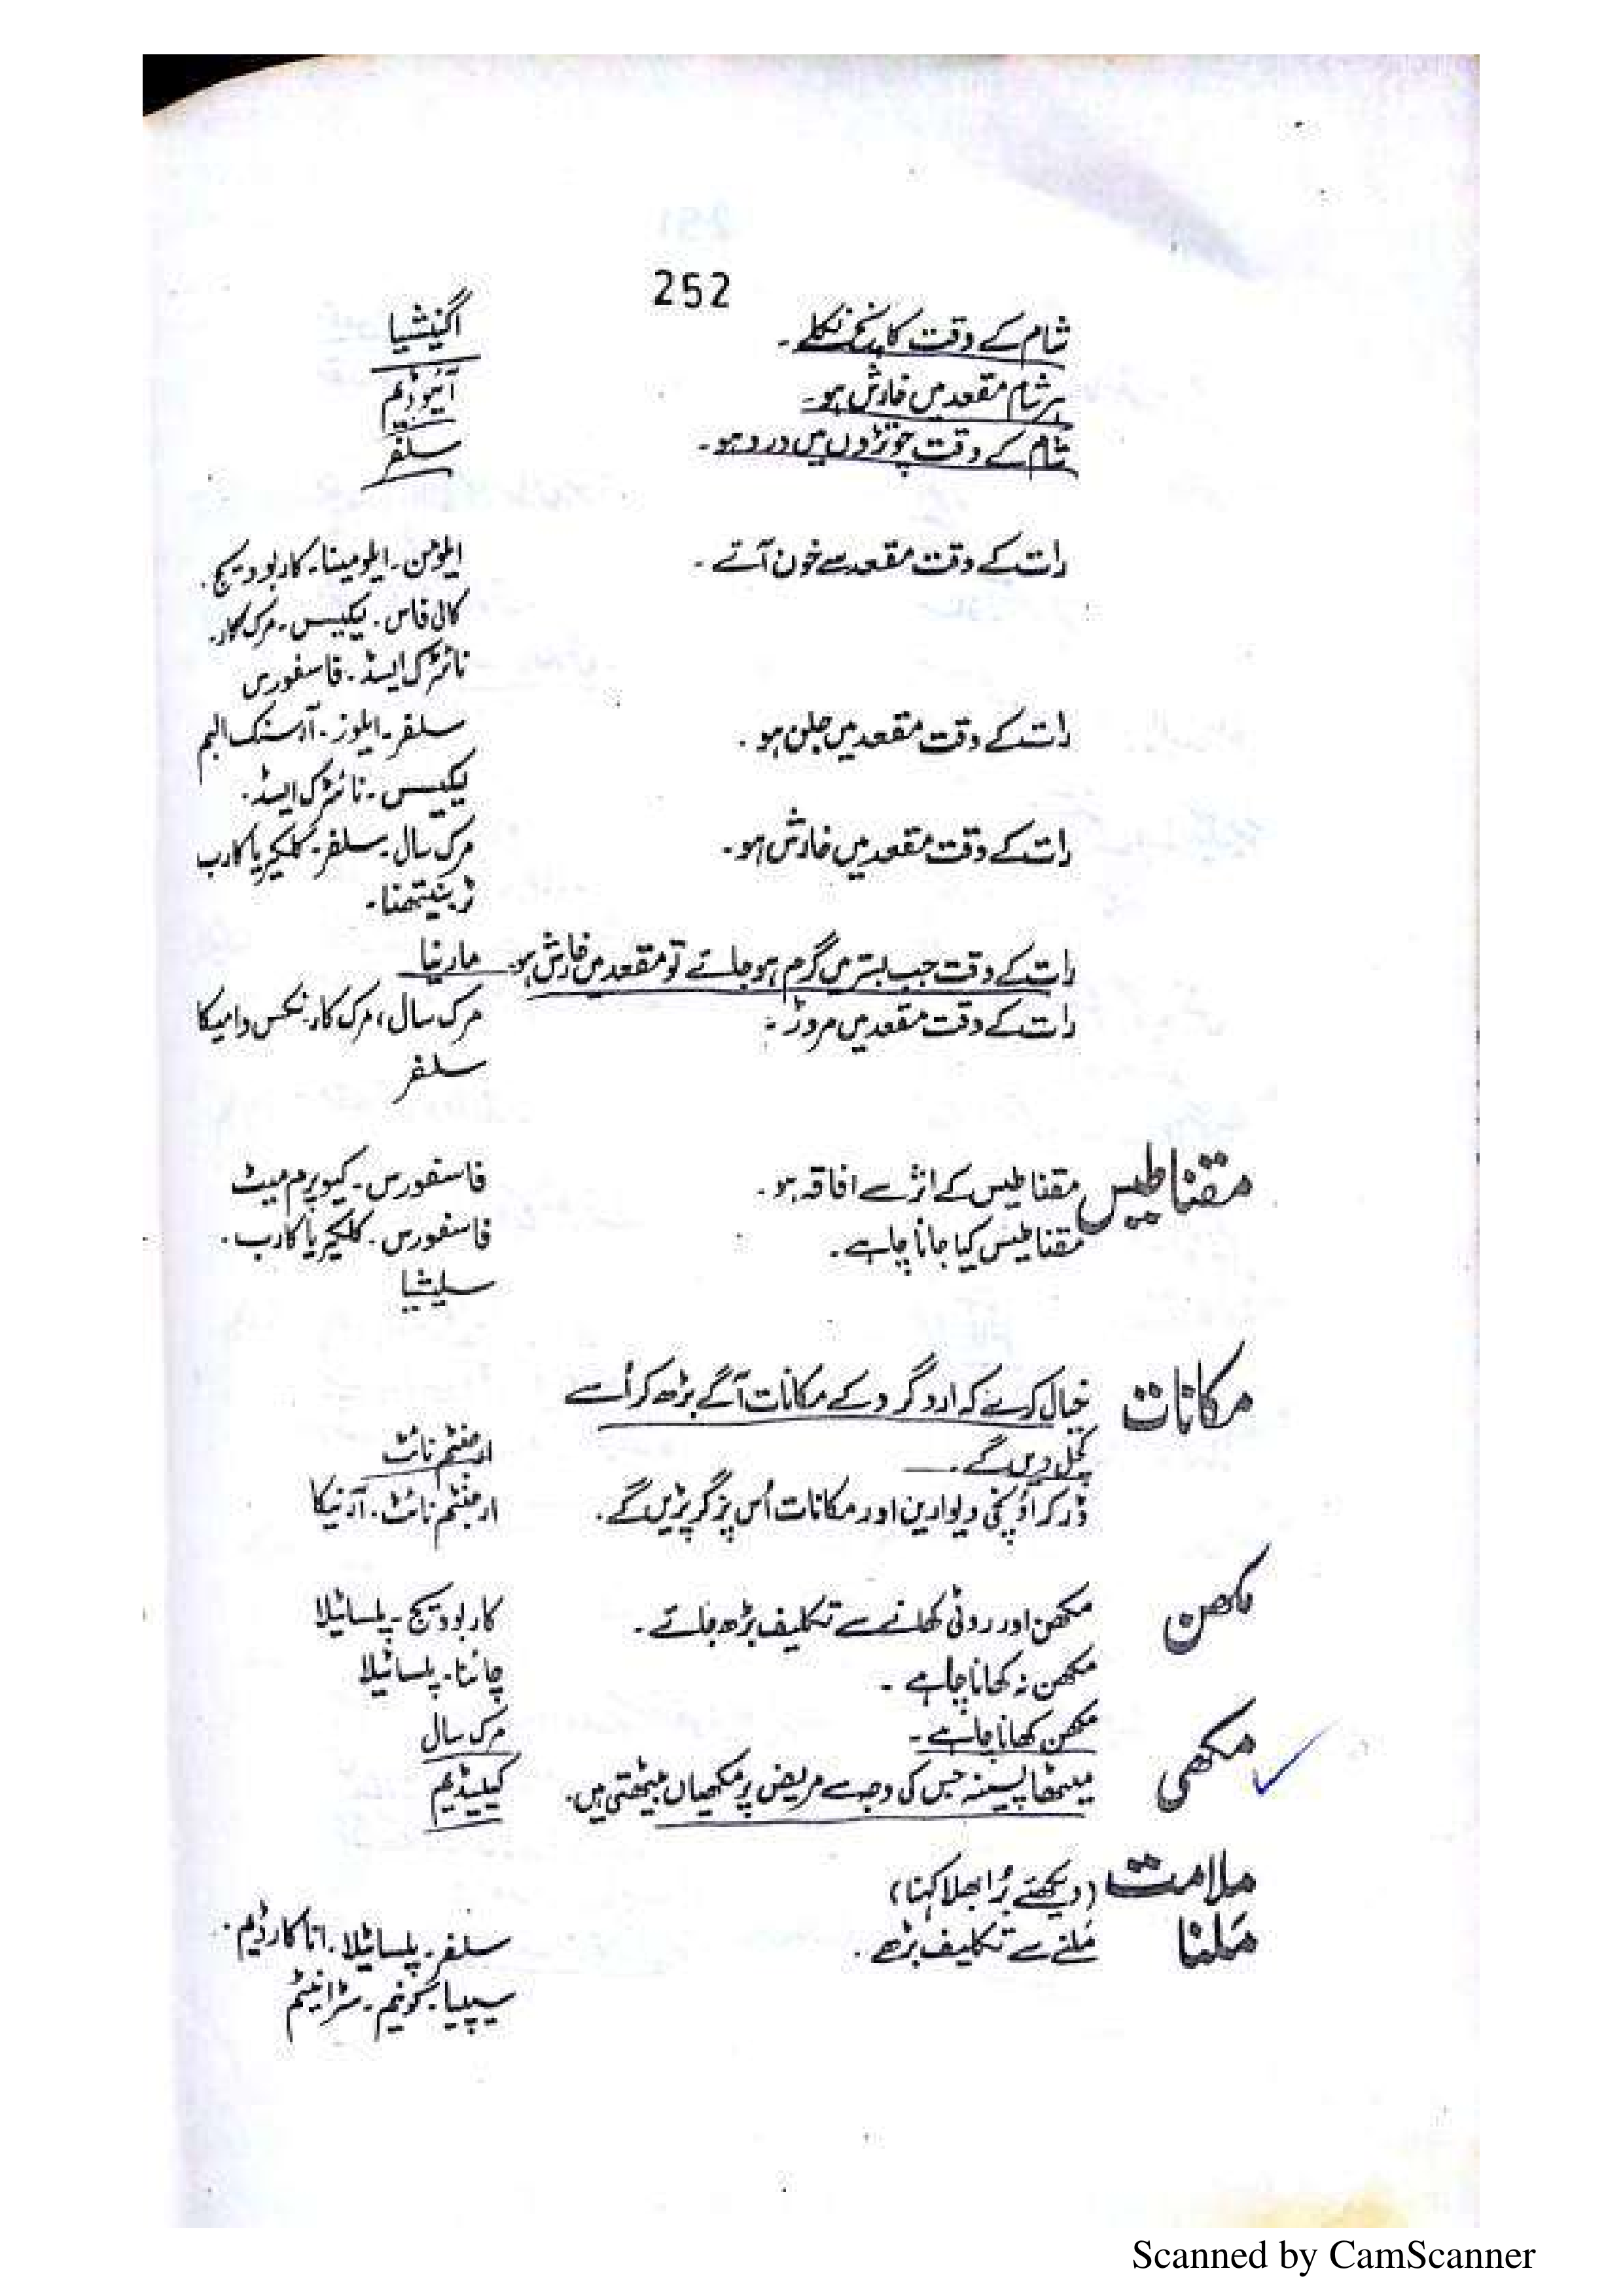 252
شام کے وقت کانچ نکلے۔ اگنیشیا
ہر شام مقعد میں خارش ہو۔ آئیوڈیم
شام کے وقت چوتڑوں میں درد ہو۔ سلفر
رات کے وقت مقعد سے خون آئے۔ ایلومن۔ ایلومینا۔ کاربوویج۔
کالی فاس۔ لیکیسس۔ مرک کار۔
نائٹرک ایسڈ۔ فاسفورس
رات کے وقت مقعد میں جلن ہو۔ سلفر۔ ایلوز۔ آرسنک البم
لیکیسس۔ نائٹرک ایسڈ۔
رات کے وقت مقعد میں خارش ہو۔ مرک سال۔ سلفر۔ کلکیریا کارب
رات کے وقت جب بستر میں گرم ہو جائے تو مقعد میں خارش ہو۔
رات کے وقت مقعد میں مروڑ۔ مرک سال، مرک کار۔ نکس وامیکا
سلفر
مقناطیس مقناطیس کے اثر سے افاقہ ہو۔ فاسفورس۔ کیوپرم میٹ
مقناطیس کیا جانا چاہے۔ فاسفورس۔ کلکیریا کارب۔
سلیشیا
مکانات خیال کرے کہ اردگرد کے مکانات آگے بڑھ کر اُسے
کچل دیں گے۔ ارجنٹم نائٹ
ڈر کر اُونچی دیوارین اور مکانات اُس پر گر پڑیں گے۔ ارجنٹم نائٹ۔ آرنیکا
مکھن مکھن اور روٹی کھانے سے تکلیف بڑھ جائے۔ کاربوویج۔ پلساٹیلا
مکھن نہ کھانا چاہے۔ چائنا۔ پلساٹیلا
مکھن کھانا چاہے۔ مرک سال
مکھی میٹھا پسینہ جس کی وجہ سے مریض پر مکھیاں بیٹھتی ہیں۔ کیلیڈیم
ملامت (دیکھئے بُرا بھلا کہنا)
مَلنا مَلنے سے تکلیف بڑھے۔ سلفر۔ پلساٹیلا۔ اناکارڈیم۔
سیپیا۔ کونیم۔ سٹرانشیم
Scanned by CamScanner